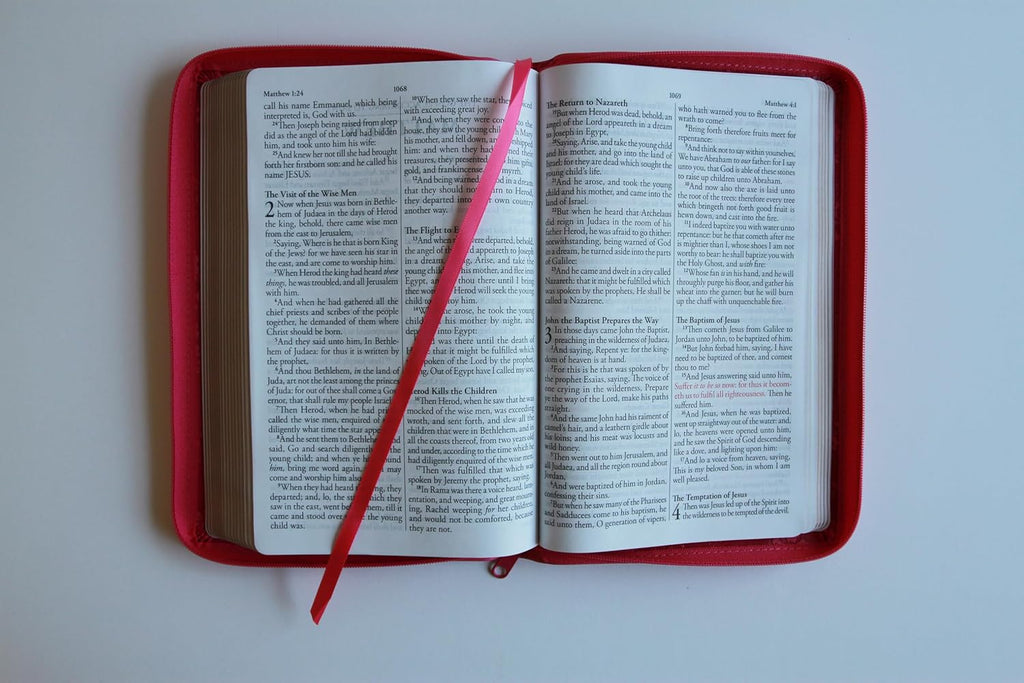 Matthew 1:24
1068
call his name Emmanuel, which being
interpreted is, God with us.
24Then Joseph being raised from sleep
did as the angel of the Lord had bidden
him, and took unto him his wife:
25And knew her not till she had brought
forth her firstborn son: and he called his
name JESUS.
The Visit of the Wise Men
2 Now when Jesus was born in Bethle-
hem of Judaea in the days of Herod
the king, behold, there came wise men
from the east to Jerusalem,
2Saying, Where is he that is born King
of the Jews? for we have seen his star in
the east, and are come to worship him.
3When Herod the king had heard these
things, he was troubled, and all Jerusalem
with him.
4And when he had gathered all the
chief priests and scribes of the people
together, he demanded of them where
Christ should be born.
5And they said unto him, In Bethle-
hem of Judaea: for thus it is written by
the prophet,
6And thou Bethlehem, in the land of
Juda, art not the least among the princes
of Juda: for out of thee shall come a Gov
ernor, that shall rule my people Israel
7Then Herod, when he had pri
called the wise men, enquired of
diligently what time the star appe
8And he sent them to Bethlehe
said, Go and search diligently
young child; and when ye h
him, bring me word again, may
come and worship him also
9When they had heard king, they
departed; and, lo, the s ch they
saw in the east, went be em, till it
came and stood over e the young
child was.
10When they saw the star, they ced
with exceeding great joy.
11And when they were com to the
house, they saw the young ch h Mary
his mother, and fell down, an shipped
him: and when they ha ned their
treasures, they presente him gifts;
gold, and frankincense, myrrh.
12And being warned d in a dream
that they should no rn to Herod,
they departed into r own country
another way.
The Flight to E
13And when ere departed, behold,
the angel of d appeareth to Joseph
in a dream, g, Arise, and take the
young child his mother, and flee into
Egypt, and thou there until I bring
thee wor Herod will seek the young
child to y him.
14W e arose, he took the young
c his mother by night, and
de into Egypt:
was there until the death of
that it might be fulfilled which
poken of the Lord by the prophet,
g, Out of Egypt have I called my son.
Herod Kills the Children
Then Herod, when he saw that he
mocked of the wise men, was exceeding
wroth, and sent forth, and slew all the
children that were in Bethlehem, and in
all the coasts thereof, from two years old
and under, according to the time which he
had diligently enquired of the wise men.
17Then was fulfilled that which was
spoken by Jeremy the prophet, saying,
18In Rama was there a voice heard, lamen-
tation, and weeping, and great mourn-
ing, Rachel weeping for her children,
and would not be comforted, because
they are not.
1069
Matthew 4:1
The Return to Nazareth
19But when Herod was dead, behold, an
angel of the Lord appeareth in a dream
to Joseph in Egypt,
20Saying, Arise, and take the young child
and his mother, and go into the land of
Israel: for they are dead which sought the
young child's life.
21And he arose, and took the young
child and his mother, and came into the
land of Israel.
22But when he heard that Archelaus
did reign in Judaea in the room of his
father Herod, he was afraid to go thither:
notwithstanding, being warned of God
in a dream, he turned aside into the parts
of Galilee:
23And he came and dwelt in a city called
Nazareth: that it might be fulfilled which
was spoken by the prophets, He shall be
called a Nazarene.
John the Baptist Prepares the Way
3 In those days came John the Baptist,
preaching in the wilderness of Judaea,
2And saying, Repent ye: for the king-
dom of heaven is at hand.
3For this is he that was spoken of by
the prophet Esaias, saying, The voice of
one crying in the wilderness, Prepare
ye the way of the Lord, make his paths
straight.
4And the same John had his raiment of
camel's hair, and a leathern girdle about
his loins; and his meat was locusts and
wild honey.
5Then went out to him Jerusalem, and
all Judaea, and all the region round about
Jordan,
6And were baptized of him in Jordan,
confessing their sins.
7But when he saw many of the Pharisees
and Sadducees come to his baptism, he
said unto them, O generation of vipers,
who hath warned you to flee from the
wrath to come?
8Bring forth therefore fruits meet for
repentance:
9And think not to say within yourselves,
We have Abraham to our father: for I say
unto you, that God is able of these stones
to raise up children unto Abraham.
10And now also the axe is laid unto
the root of the trees: therefore every tree
which bringeth not forth good fruit is
hewn down, and cast into the fire.
11I indeed baptize you with water unto
repentance: but he that cometh after me
is mightier than I, whose shoes I am not
worthy to bear: he shall baptize you with
the Holy Ghost, and with fire:
12Whose fan is in his hand, and he will
throughly purge his floor, and gather his
wheat into the garner; but he will burn
up the chaff with unquenchable fire.
The Baptism of Jesus
13Then cometh Jesus from Galilee to
Jordan unto John, to be baptized of him.
14But John forbad him, saying, I have
need to be baptized of thee, and comest
thou to me?
15And Jesus answering said unto him,
Suffer it to be so now: for thus it becom-
eth us to fulfil all righteousness. Then he
suffered him.
16And Jesus, when he was baptized,
went up straightway out of the water: and,
lo, the heavens were opened unto him,
and he saw the Spirit of God descending
like a dove, and lighting upon him:
17And lo a voice from heaven, saying,
This is my beloved Son, in whom I am
well pleased.
The Temptation of Jesus
4 Then was Jesus led up of the Spirit into
the wilderness to be tempted of the devil.